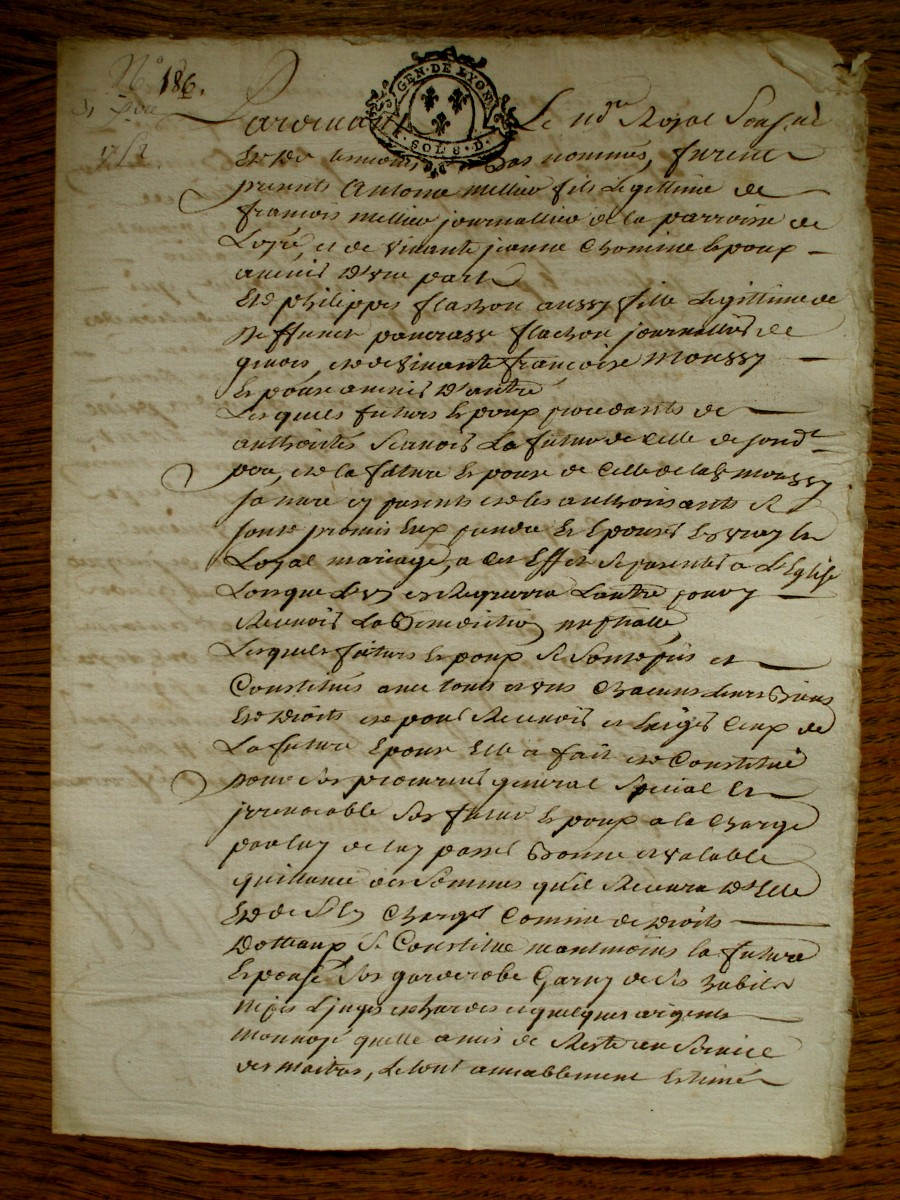 N° 186.
GEN. DE LYON
SOLS. D.
Pardevant Le nore Royal Soussigné
Et les temoins bas nommés, furent
presents Antoine mellier fils Legittime de
francois mellier journallier de la parroisse de
Loyre, et de vivante jeanne Chomine Epoux
avenir d'une part
Et philippes flachon aussy fille Legittime de
deffunct pancrasse flachon journallier de
givors, et de vivante francoise Moussy
Epouse avenir d'autre
Lesquels futurs Epoux procedants de
authorités scavoir Le futur de celle de sondt
pere, et la future Epouse de celle de lad moussy
sa mere cy presents et les authorisants se
sont promis eux prendre et Epouser en vray et
Loyal mariage, a cet Effet se presenter a L'Eglise
Lorsque L'un en Requerra L'autre pour y
Recevoir La Benediction nuptialle,
Lesquels futurs Epoux se sont et
Constitués avec tous et uns Chacuns Leurs Biens
Et Droits et pour Recevoir et Exiger Ceux de
La future Epouse Elle a fait et Constitué
pour son procureur general Special et
irrevocable son futur Epoux a la Charge
par luy de luy passer Bonne et valable
quittance des Sommes qu'il Recevra D'Elle
Et de S'En Charger Comme de Droits
Dottaux Se Constitue neantmoins la future
Epouse son garderobe Garny de ses habits
nipes Linges et hardes et quelques argents
monnoyé quelle a mis de Reste au Service
des maitres, Le tout amiablement Estimé